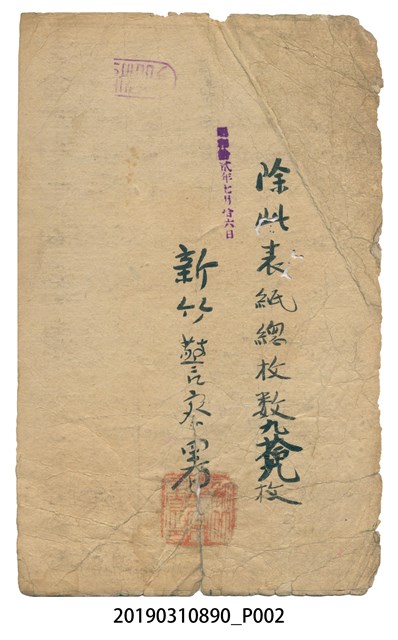 除此表紙總枚数九拾九枚
昭和拾貳年七月廿六日
新竹警察署
20190310890_P002